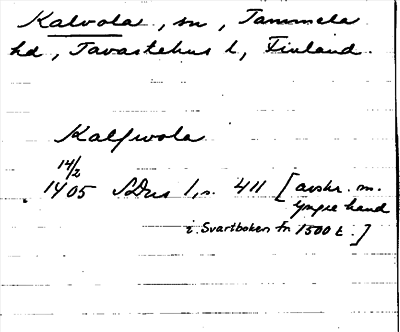 Kalvola, sn, Tammela
hd, Tavastehus l, Finland.
Kalfwola
14/2
1405 SDns 1, s. 411 [avskr. m.
yngre hand
i Svartboken fr 1500 t.]